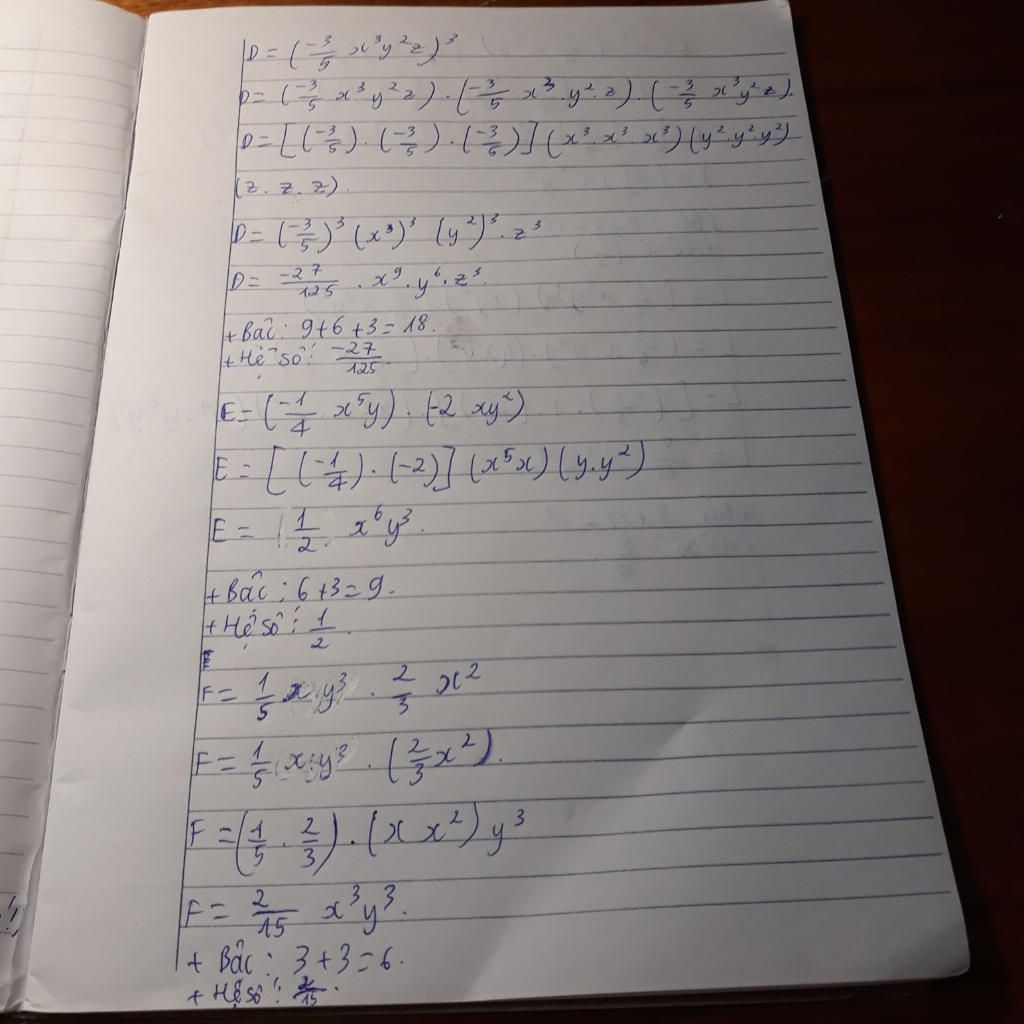 D = (-3/5 x³y²z)³
D = (-3/5 x³y²z) . (-3/5 x³.y².z) . (-3/5 x³y²z).
D = [(-3/5) . (-3/5) . (-3/5)] (x³.x³.x³) (y².y².y²)
(z.z.z).
D = (-3/5)³ (x³)³ (y²)³ . z³
D = -27/125 . x⁹.y⁶.z³.
+ Bậc : 9+6+3=18.
+ Hệ số : -27/125.
E = (-1/4 x⁵y) . (-2 xy²)
E = [(-1/4) . (-2)] (x⁵x) (y.y²)
E = 1/2 x⁶y³.
+ Bậc : 6+3=9.
+ Hệ số : 1/2.
F = 1/5 x.y³ . 2/3 x²
F = 1/5 x.y³ . (2/3 x²).
F = (1/5 . 2/3) . (x x²) y³
F = 2/15 x³y³.
+ Bậc : 3+3=6.
+ Hệ số : 2/15.